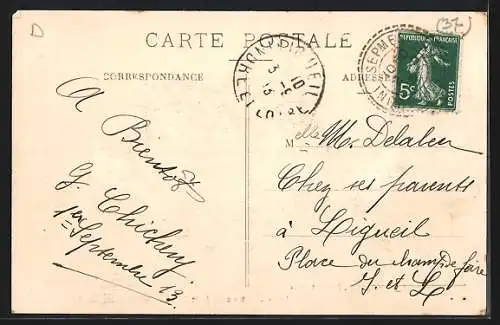 D
(37)
CARTE POSTALE
CORRESPONDANCE
ADRESSE
RÉPUBLIQUE FRANÇAISE
5c
POSTES
SEPME
A
Bientôt
G. Chichery
1er Septembre 13
Melle M. Delaleu
Chez ses parents
à Ligueil
Place du champ de foire
I. et L.